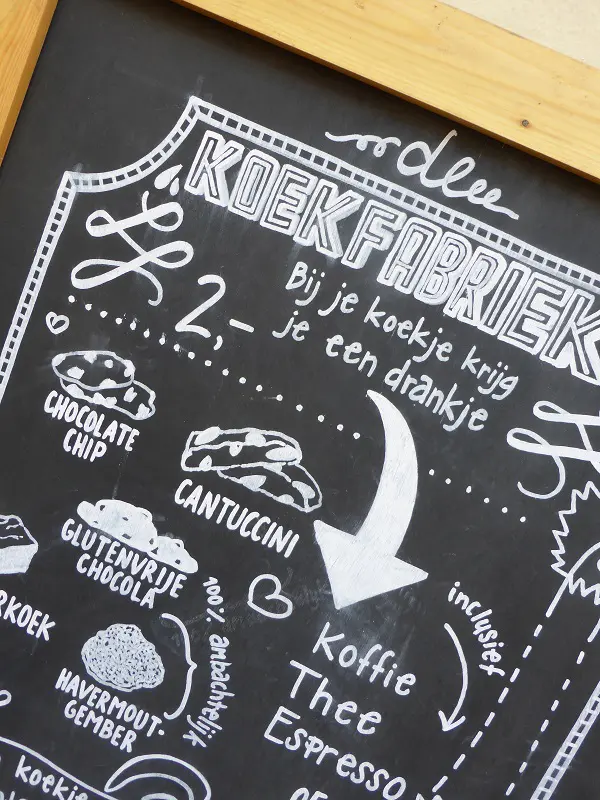 dee
KOEKFABRIEK
2,-
Bij je koekje krijg
je een drankje
CHOCOLATE
CHIP
CANTUCCINI
GLUTENVRIJE
CHOCOLA
RKOEK
HAVERMOUT-
GEMBER
100% ambachtelijk
inclusief
Koffie
Thee
Espresso
koekje